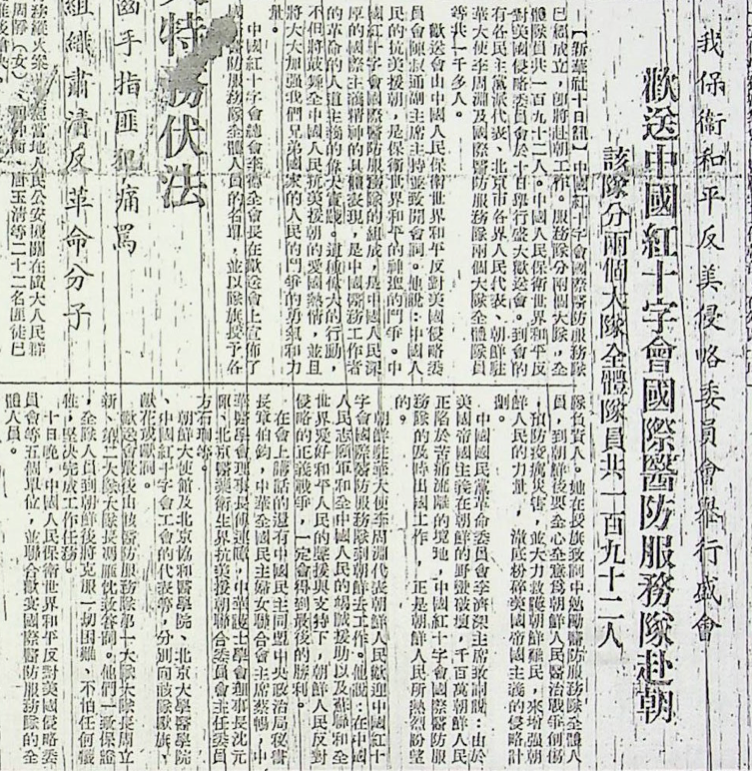 我保衛和平反美侵略委員會舉行盛會
歡送中國紅十字會國際醫防服務隊赴朝
該隊分兩個大隊全體隊員共一百九十二人
【新華社十日訊】中國紅十字會國際醫防服務隊
已經成立，卽將赴朝工作。服務隊分兩個大隊，全
體隊員共一百九十二人。中國人民保衛世界和平反
對美國侵略委員會於十日舉行盛大歡送會。到會的
有各民主黨派代表、北京市各界人民代表、朝鮮駐
華大使李周淵及國際醫防服務隊兩個大隊全體隊員
等共一千多人。
歡送會由中國人民保衛世界和平反對美國侵略委
員會陳叔通副主席主持並致開會詞。他說：中國人
民的抗美援朝，是保衛世界和平的神聖的鬥爭。中
國紅十字會國際醫防服務隊的組成，是中國人民深
厚的國際主義精神的具體表現，是中國醫務工作者
的革命的人道主義的偉大實踐。這種偉大的行動，
不但將鼓舞全中國人民抗美援朝的愛國熱情，並且
將大大加強我們兄弟國家的人民的鬥爭的勇氣和力
量。
中國紅十字會總會李德全會長在歡送會上宣佈了
國際醫防服務隊全體人員的名單，並以隊旗授予各
隊負責人。她在授旗致詞中勉勵醫防服務隊全體人
員，到朝鮮後要全心全意爲朝鮮人民醫治戰爭創傷
，預防疫癘災害，並大力救護朝鮮難民，來增强朝
鮮人民的力量，澈底粉碎美國帝國主義的侵略計
劃。
中國國民黨革命委員會李濟深主席致詞說：由於
美國帝國主義在朝鮮的野蠻破壞，千百萬朝鮮人民
正陷於苦痛流離的境地，中國紅十字會國際醫防服
務隊的及時出國工作，正是朝鮮人民所熱烈盼望
的。
朝鮮駐華大使李周淵代表朝鮮人民歡迎中國紅十
字會國際醫防服務隊到朝鮮去工作。他說：在中國
人民志願軍和全中國人民的竭誠援助以及蘇聯和全
世界愛好和平人民的聲援與支持下，朝鮮人民反對
侵略的正義戰爭，一定會得到最後的勝利。
在會上講話的還有中國民主同盟中央政治局秘書
長章伯鈞，中華全國民主婦女聯合會主席蔡暢，中
華醫學會理事長傅連暲，中華護士學會理事長沈元
暉、北京醫藥衛生界抗美援朝聯合委員會主任委員
方石珊等。
朝鮮大使館及北京協和醫學院、北京大學醫學院
、中國紅十字會工會的代表等，分別向該隊獻旗、
獻花或獻詞。
歡送會最後由該醫防服務隊第一大隊大隊長周立
新、第二大隊大隊長馮雁忱致答詞。他們一致保證
，全隊人員到朝鮮後將克服一切困難，不怕任何犧
牲，堅決完成工作任務。
十日晚，中國人民保衛世界和平反對美國侵略委
員會等五個單位，並聯合歡宴國際醫防服務隊的全
體人員。
特務伏法
手指匪犯痛罵
組織肅清反革命分子
當地人民公安機關在廣大人民群
唐玉清等二十二名匪徒已